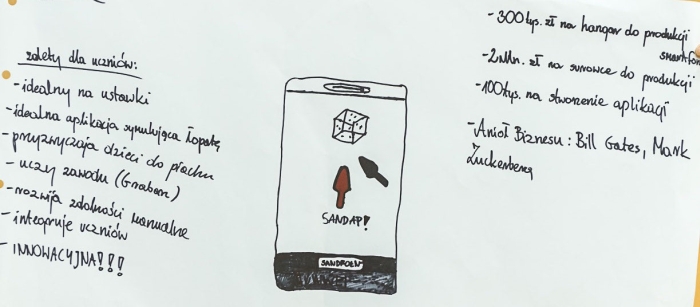 zalety dla uczniów:
- idealny na ustawki
- idealna aplikacja symulująca łopatę
- przyzwyczaja dzieci do piachu
- uczy zawodu (Grabarz)
- rozwija zdolności manualne
- integruje uczniów
- INNOWACYJNA!!!
SANDAP!
SANDROEN
- 300tys. zł na hangar do produkcji
smartfon
- 2mln. zł na surowce do produkcji
- 100tys. na stworzenie aplikacji
- Anioł Biznesu: Bill Gates, Mark
Zuckerberg